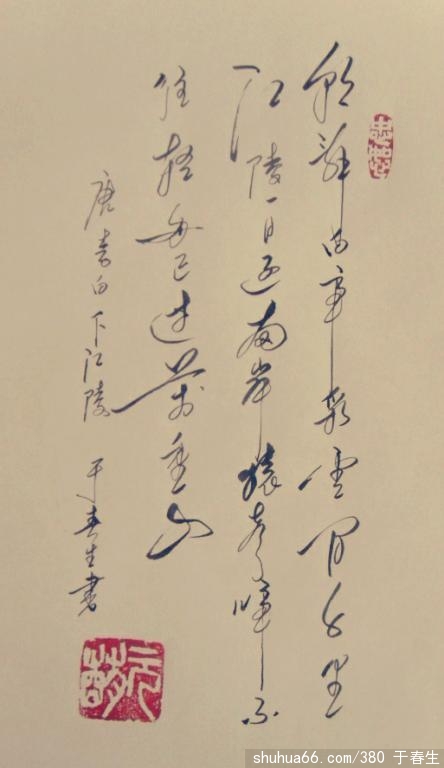 朝辞白帝彩雲间千里
江陵一日还两岸猿声啼不
住轻舟已过萬重山
唐李白下江陵 于春生書
shuhua66.com/380 于春生